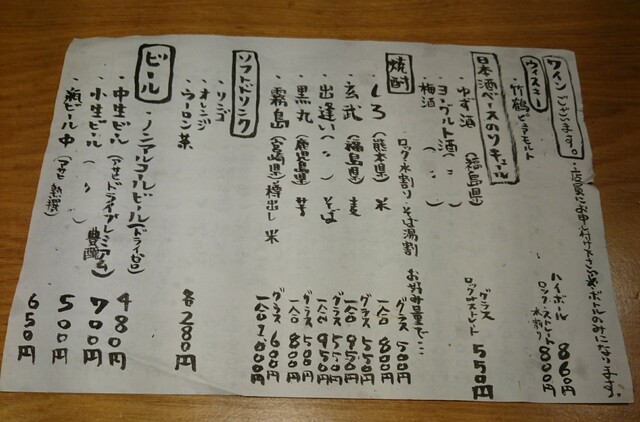 ワインございます。
ウィスキー
・竹鶴ピュアモルト
ハイボール 860円
ロック・ストレート 水割り 800円
日本酒ベースのリキュール
・ゆず酒(福島県)
・ヨーグルト酒(〃)
・梅酒(〃)
グラス ロック・ストレート 550円
焼酎 ロック 水割り そば湯割 お好み量で
・しろ(熊本県)米
グラス 500円
一合 800円
・玄武(福島県)麦
グラス 550円
一合 950円
・出逢い(〃)そば
グラス 550円
一合 950円
・黒丸(鹿児島県)芋
グラス 500円
一合 800円
・霧島(宮崎県)樽出し 米
グラス 600円
一合 1000円
ソフトドリンク
・リンゴ
・オレンジ
・ウーロン茶
各 280円
ビール
・ノンアルコールビール(ドライゼロ) 480円
・中生ビール(アサヒドライプレミアム 豊醸) 700円
・小生ビール(〃) 500円
・瓶ビール中(アサヒ 熟撰) 650円